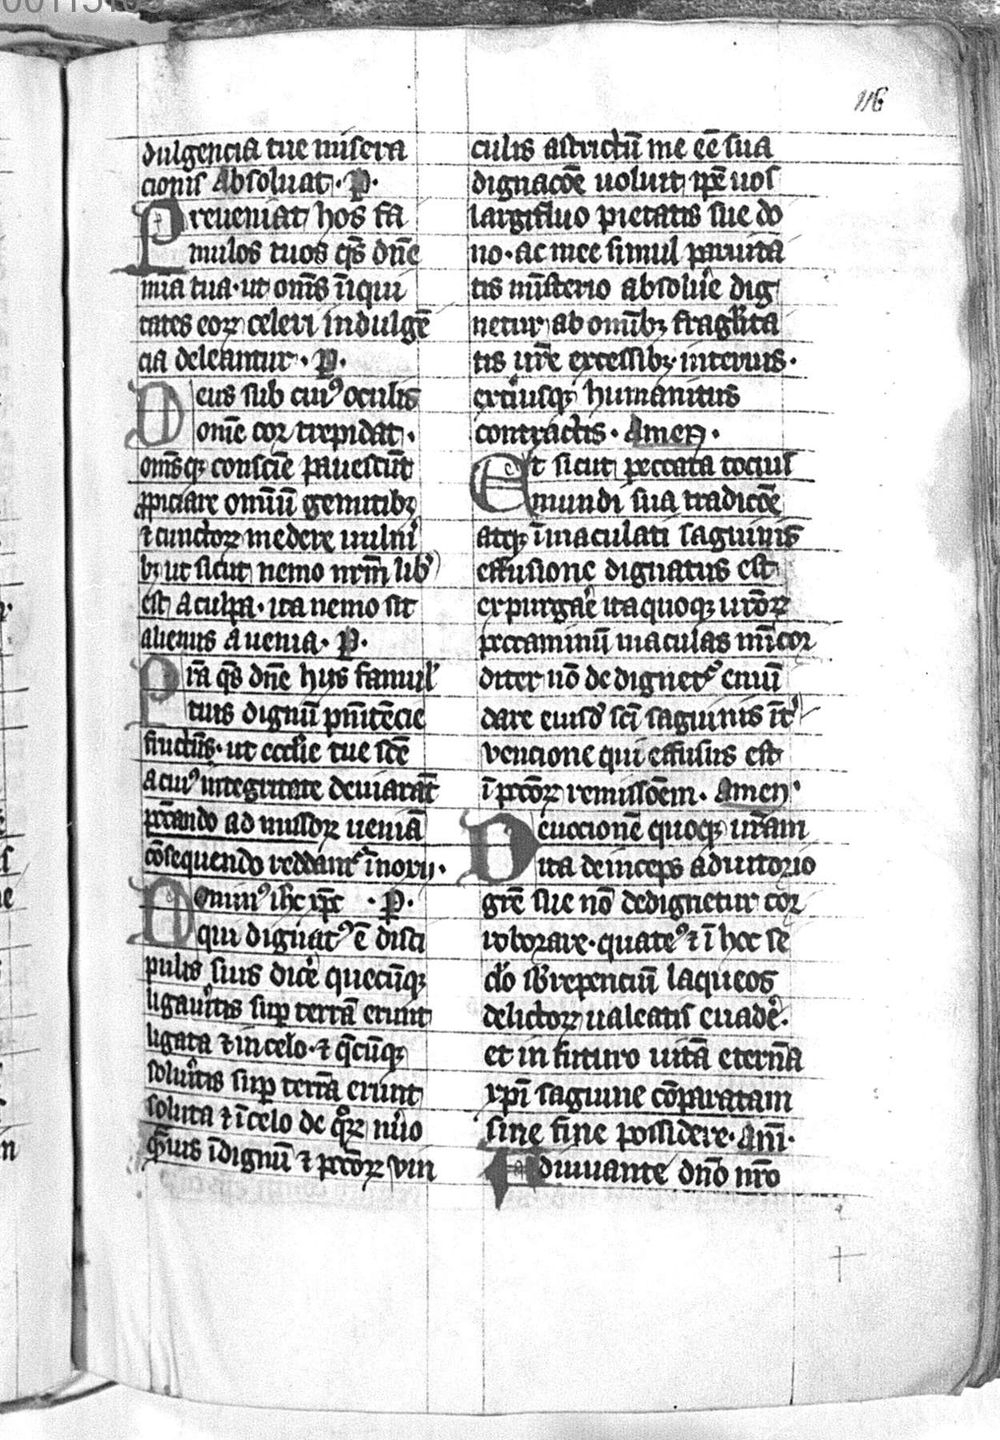 116
dulgencia tue misera
cionis absoluat · P ·
Preueniat hos fa
mulos tuos q̄s dn̄e
mīa tua · ut om̄s īiqui
tates eoꝝ celeri indulgē
cia deleantur · P ·
Deus sub cuiꝰ oculis
om̄e cor trepidat ·
om̄sqꝫ consciē pauescūt
ꝓpiciare omīū gemitibꝫ
⁊ cunctoꝝ medere uulni
bꝫ ut sicut nemo nr̄m libʼ
est a culpa · ita nemo sit
alienus a uenia · P ·
Pr̄a q̄s dn̄e hiis famulʼ
tuis dignū pn̄itēcie
fructū · ut ecclīe tue scē
a cuiꝰ integritate deuiarāt
pccando ad missoꝝ ueniā
cōsequendo reddantʼ īnoxii ·
Dominꝰ ihc xp̄c · P ·
qui dignatꝰ ē disci
pulis suis dicēʼ quecūqꝫ
ligauʼitis sup terrā erunt
ligata ⁊ in celo · ⁊ q̄cūqꝫ
soluʼitis sup terrā erunt
soluta ⁊ ī celo de qʼꝝ nūo
qͣuis īdignū ⁊ pccōꝝ vin
culis astrictū me eē sua
dignacōe uoluit ip̄e uos
largifluo pietatis sue do
no · ac mee simul paruita
tis mīsterio absoluʼe dig
netur ab omībꝫ fragilita
tis ur̄e excessibꝫ interius ·
exteriusqꝫ humanitus
contractis · Amen ·
Et sicut peccata tocius
mundi sua tradicōe
atqꝫ īmaculati saguinis
effusione dignatus est
expurgaʼe ita quoqꝫ ur̄oꝝ
peccaminū maculas mīcor
diter nō dedignetʼ emū
dare eiusdʼ sc̄i saguinis īt
uencione qui effusus est
ī pccōꝝ remissōem · Amen ·
Deuocionē quoqꝫ ur̄am
ita deinceps adiutorio
gr̄e sue nō dedignetur cor
roborare · quateꝰ ⁊ ī hoc se
clʼo sb̄repenciū laqueos
delictoꝝ ualeatis euadēʼ ·
et in futuro uitā eternā
xp̄i saguine cōparatam
sine fine possidere · Am̄ ·
adiuuante dn̄o nr̄o